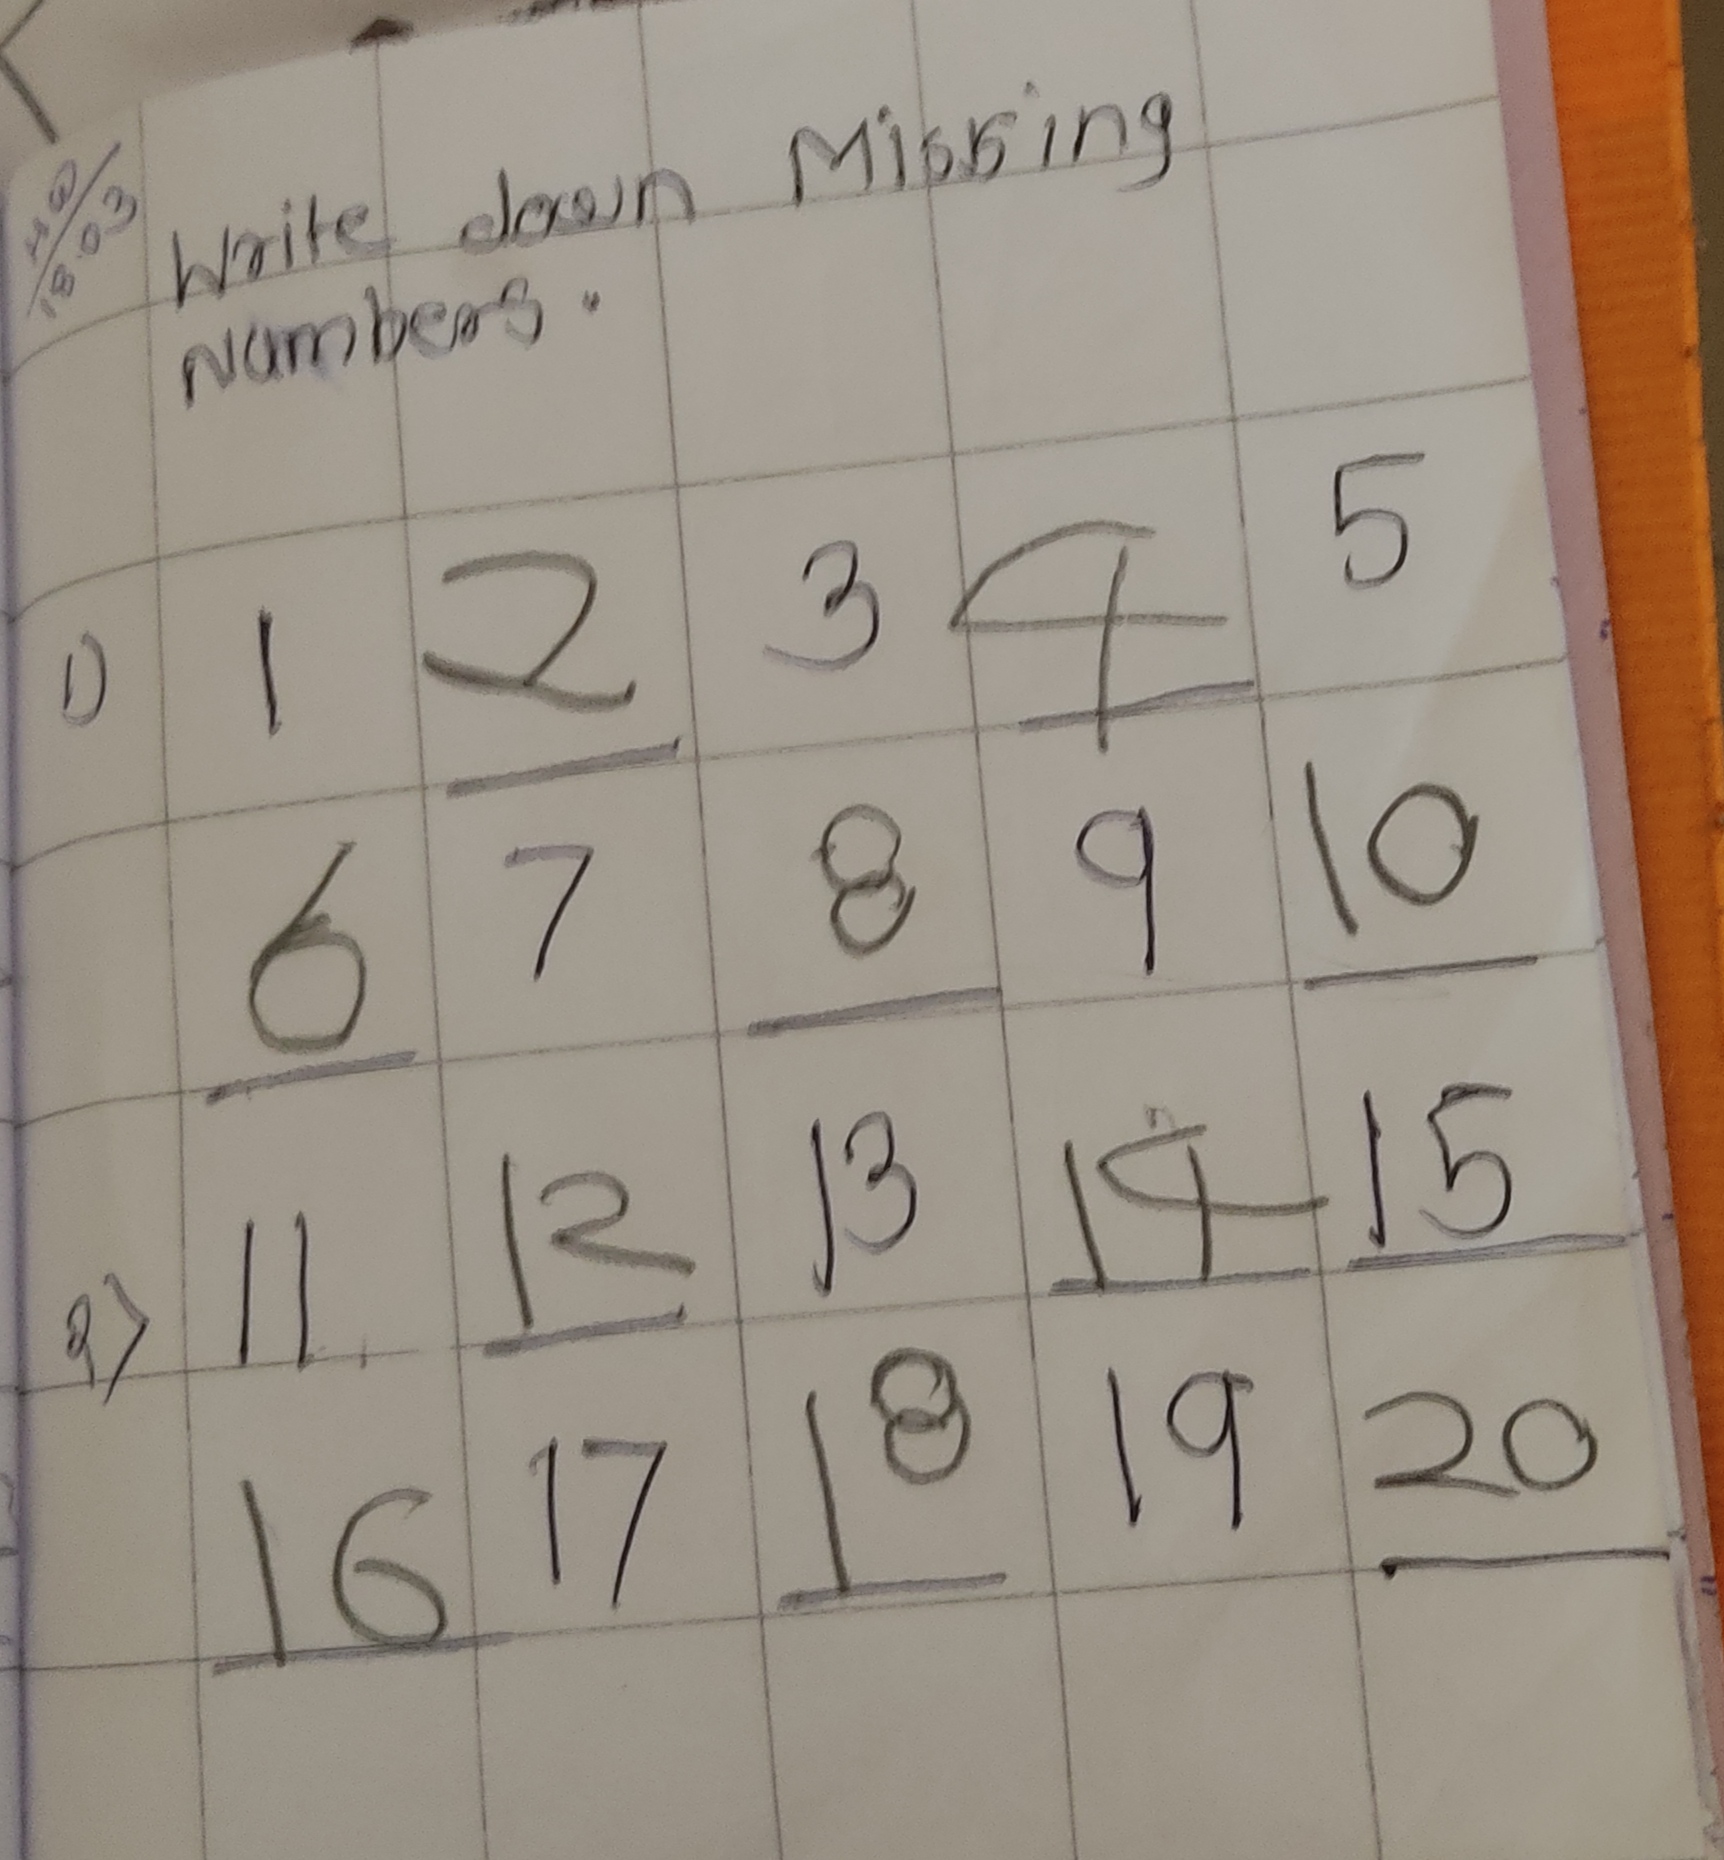 HW
18.03
Write down Missing
Numbers.
1) 1 2 3 4 5
6 7 8 9 10
2) 11 12 13 14 15
16 17 18 19 20